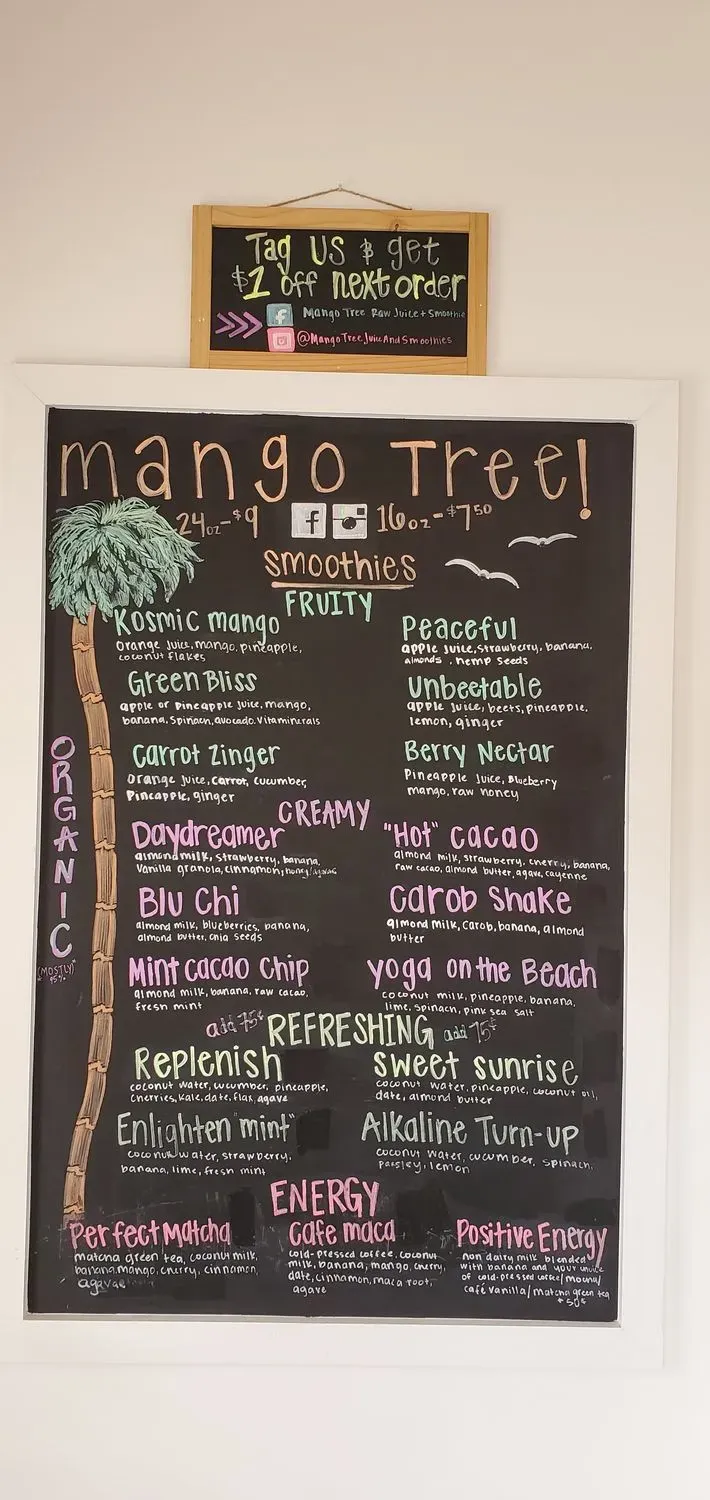 Tag US & get
$1 off next order
>>> f Mango Tree Raw Juice + Smoothie
@MangoTreeJuiceAndSmoothies
mango Tree!
24oz-$9 f 16oz-$750
smoothies
FRUITY
Kosmic mango
Orange Juice, mango, pineapple,
coconut flakes
Peaceful
apple juice, strawberry, banana,
almonds, hemp Seeds
Green Bliss
apple or Pineapple Juice, mango,
banana, Spinach, avocado, Vitaminerals
Unbeetable
apple juice, beets, pineapple,
lemon, ginger
Carrot Zinger
Orange juice, carrot, cucumber,
Pineapple, ginger
Berry Nectar
Pineapple Juice, Blueberry
mango, raw honey
ORGANIC
(MOSTLY)
CREAMY
Daydreamer
almond milk, strawberry, banana,
Vanilla granola, cinnamon, honey/agave
"Hot" cacao
almond milk, strawberry, cherry, banana,
raw cacao, almond butter, agave, cayenne
Blu Chi
almond milk, blueberries, banana,
almond butter, chia seeds
Carob Shake
almond milk, carob, banana, almond
butter
Mint cacao Chip
almond milk, banana, raw cacao,
fresh mint
yoga on the Beach
coconut milk, pineapple, banana,
lime, spinach, pink sea salt
add 75¢ REFRESHING add 75¢
Replenish
coconut water, cucumber, pineapple,
cherries, kale, date, flax, agave
sweet sunrise
coconut water, pineapple, coconut oil,
date, almond butter
Enlighten "mint"
coconut water, strawberry,
banana, lime, fresh mint
Alkaline Turn-up
coconut water, cucumber, spinach,
parsley, lemon
ENERGY
Perfect Matcha
matcha green tea, coconut milk,
banana, mango, cherry, cinnamon,
agave
Cafe maca
cold-pressed coffee, coconut
milk, banana, mango, cherry,
date, cinnamon, maca root,
agave
Positive Energy
non dairy milk blended
with banana and your choice
of cold-pressed coffee/mocha/
café vanilla/matcha green tea
+50¢